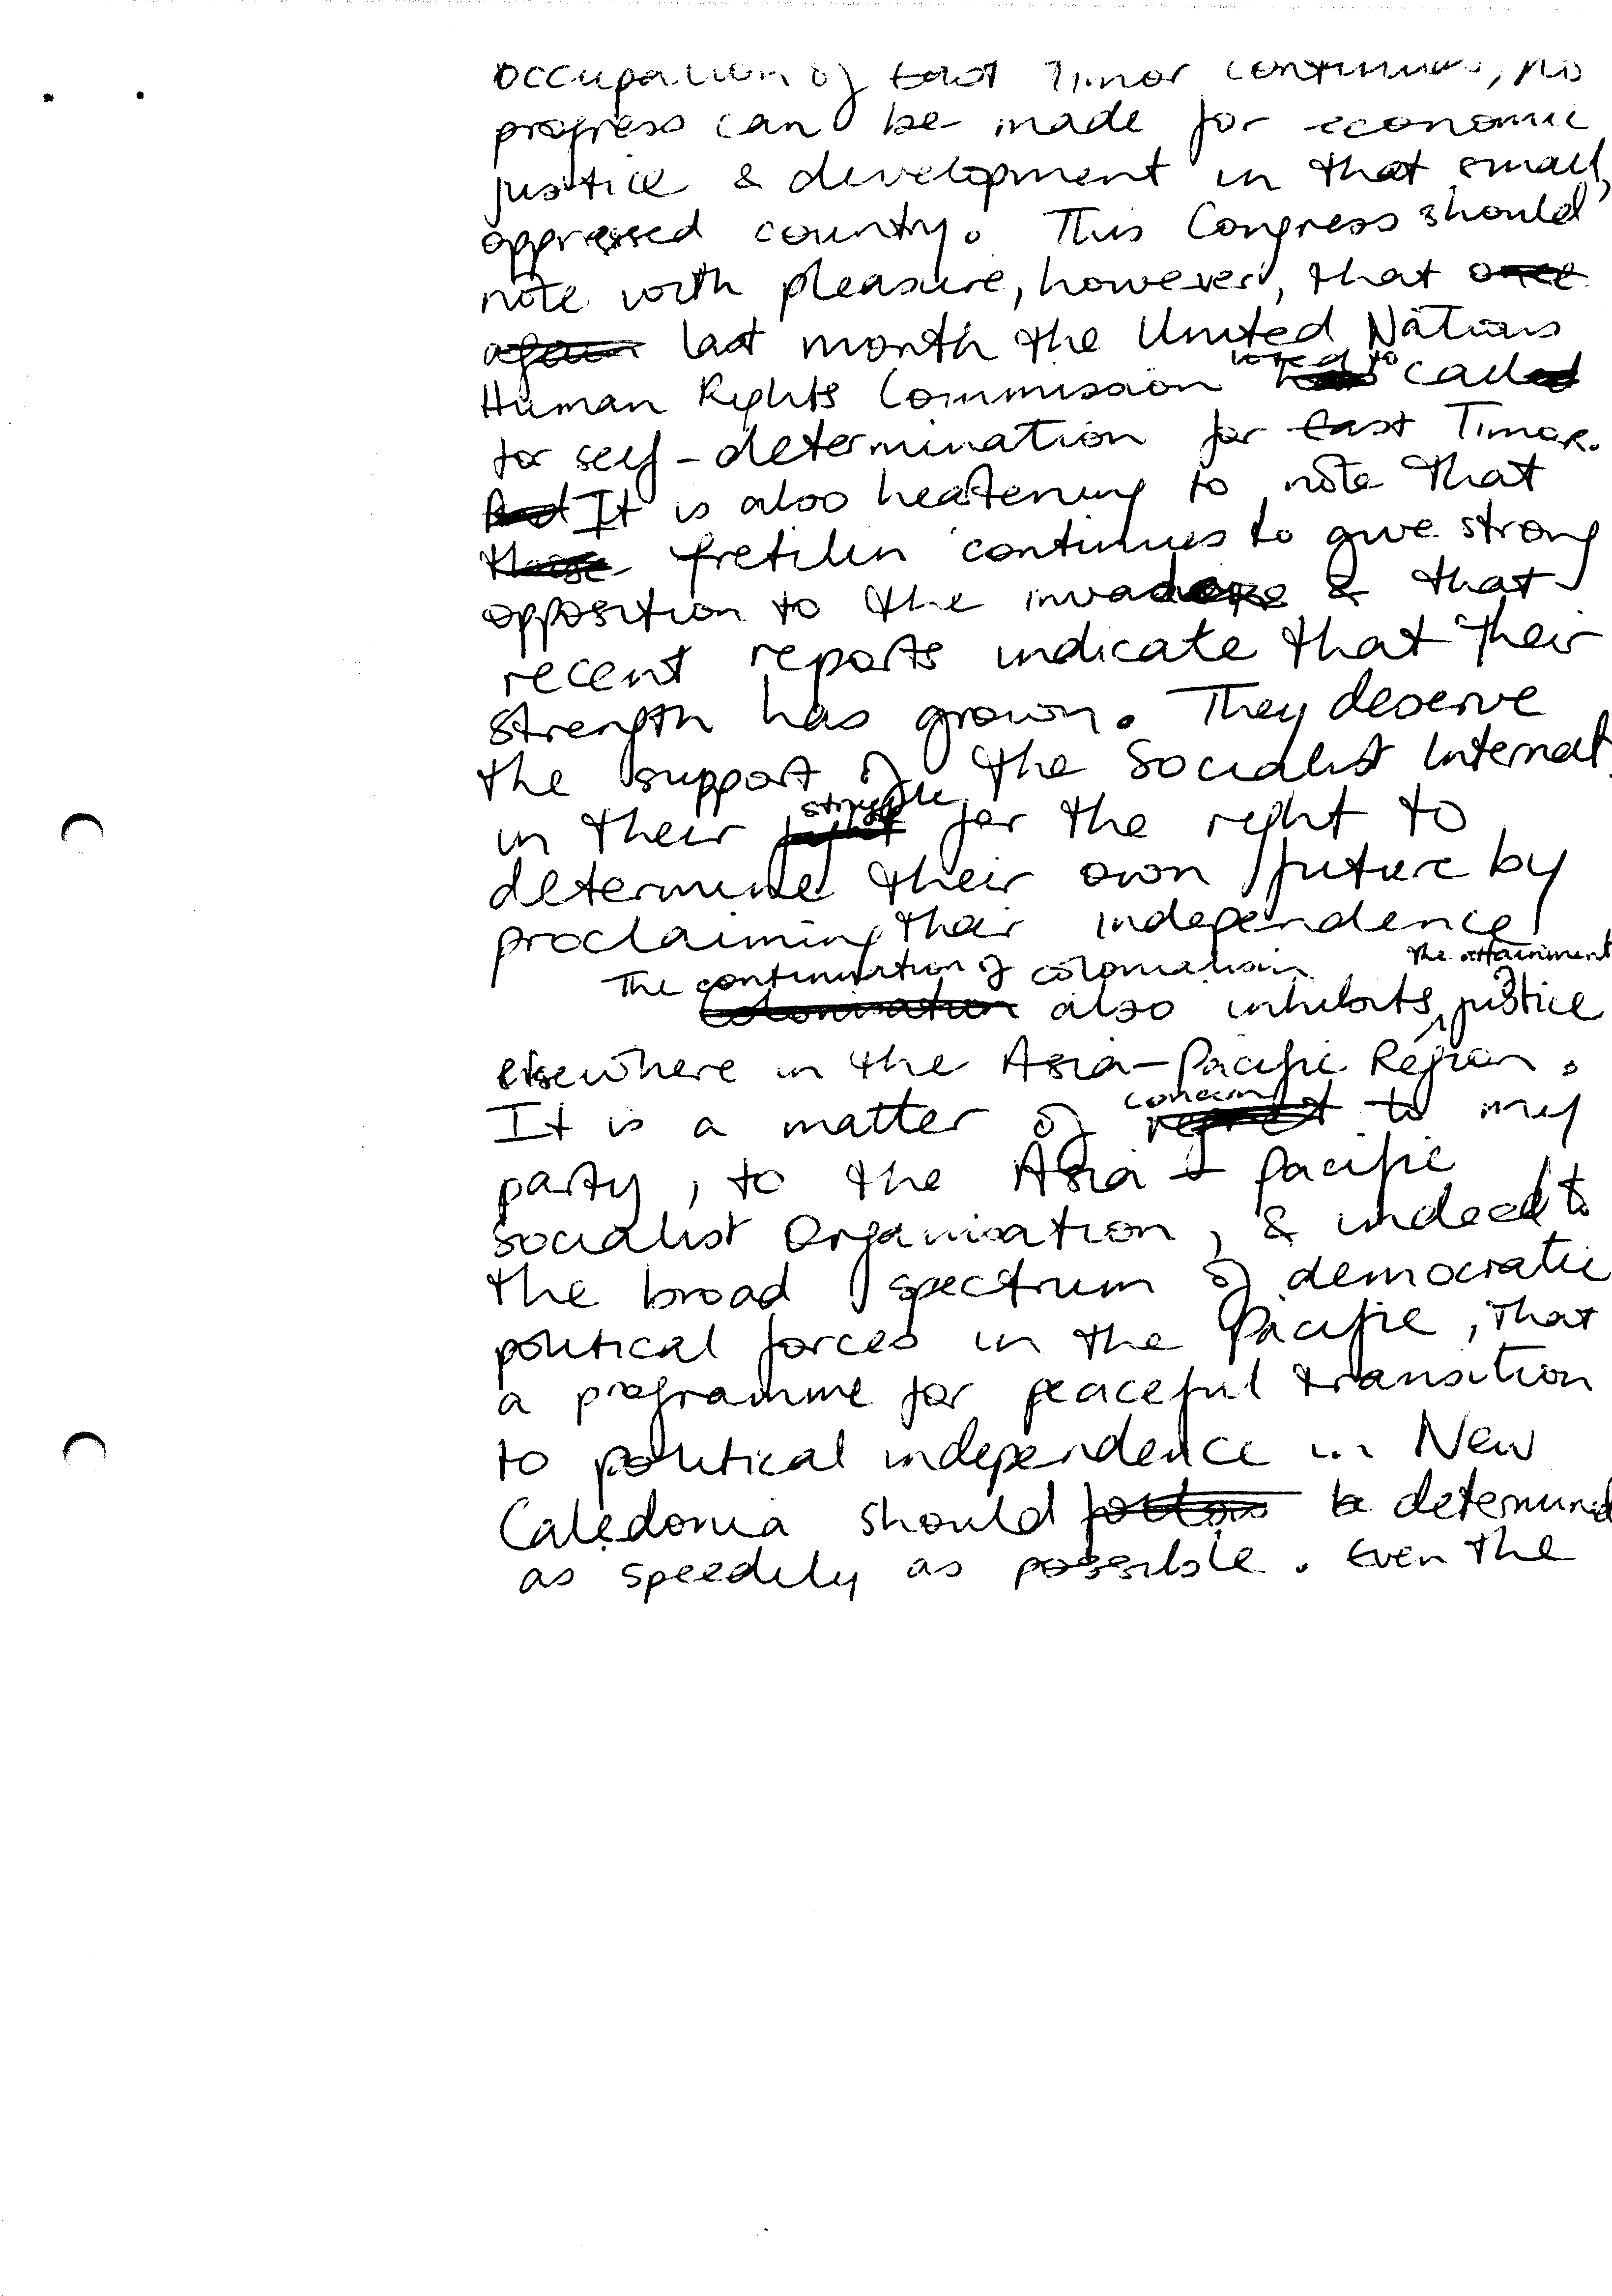 occupation of East Timor continues, no
progress can be made for economic
justice & development in that small,
oppressed country. This Congress should
note with pleasure, however, that once
again last month the United Nations
voted to
Human Rights Commission has called
for self-determination for East Timor.
And It is also heatening to note that
those Fretilin continues to give strong
opposition to the invaders & that
recent reports indicate that their
strength has grown. They deserve
the support of the Socialist Internat.
struggle
in their fight for the right to
determine their own future by
proclaiming their independence
The continuation of colonialism the attainment of
Colonisation also inhibits justice
elsewhere in the Asia-Pacific Region.
concern
It is a matter of regret to my
party, to the Asia-Pacific
Socialist Organisation, & indeed to
the broad spectrum of democratic
political forces in the Pacific, that
a programme for peaceful transition
to political independence in New
Caledonia should be determined
as speedily as possible. Even the